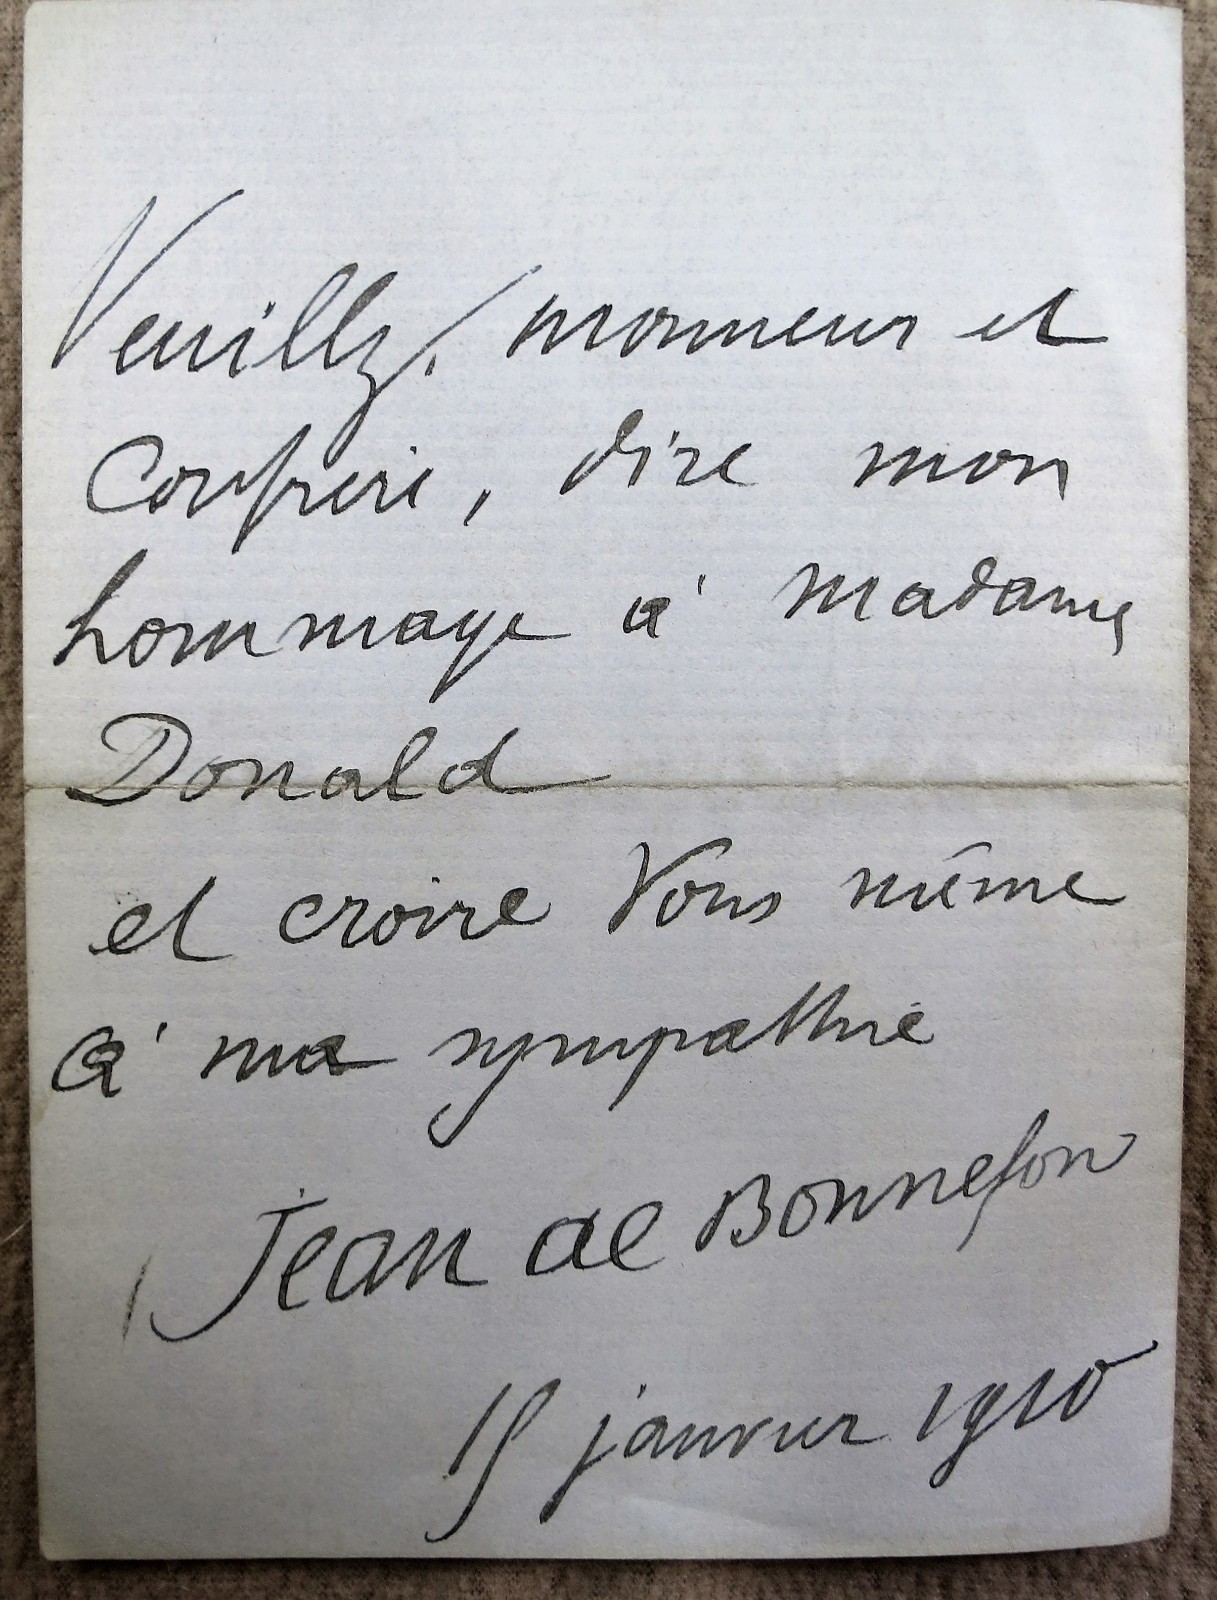 Veuillez, monsieur et
Confrère, dire mon
hommage à madame
Donald
et croire Vous même
à ma sympathie
Jean de Bonnefon
15 janvier 1910